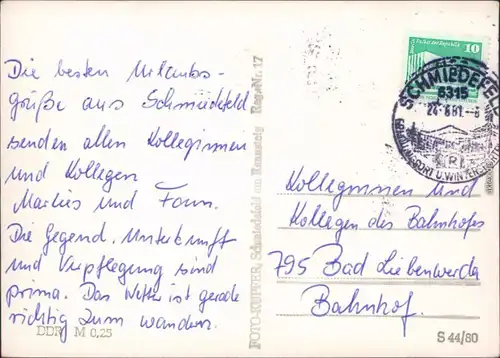 Die besten Urlaubs-
grüße aus Schmiedefeld
senden allen Kolleginnen
und Kollegen
Marlies und Fam.
Die Gegend, Unterkunft
und Verpflegung sind
prima. Das Wetter ist gerade
richtig zum wandern.
DDR M 0,25
FOTO-KUPFER, Schmiedefeld am Rennsteig Reg.-Nr. 17
10
SCHMIEDEFE
6315
24-8.81.-8
ERHOLUNGSORT U. WINTERSPORT
(R)
Kolleginnen und
Kollegen des Bahnhofes
795 Bad Liebenwerda
Bahnhof.
S 44/80